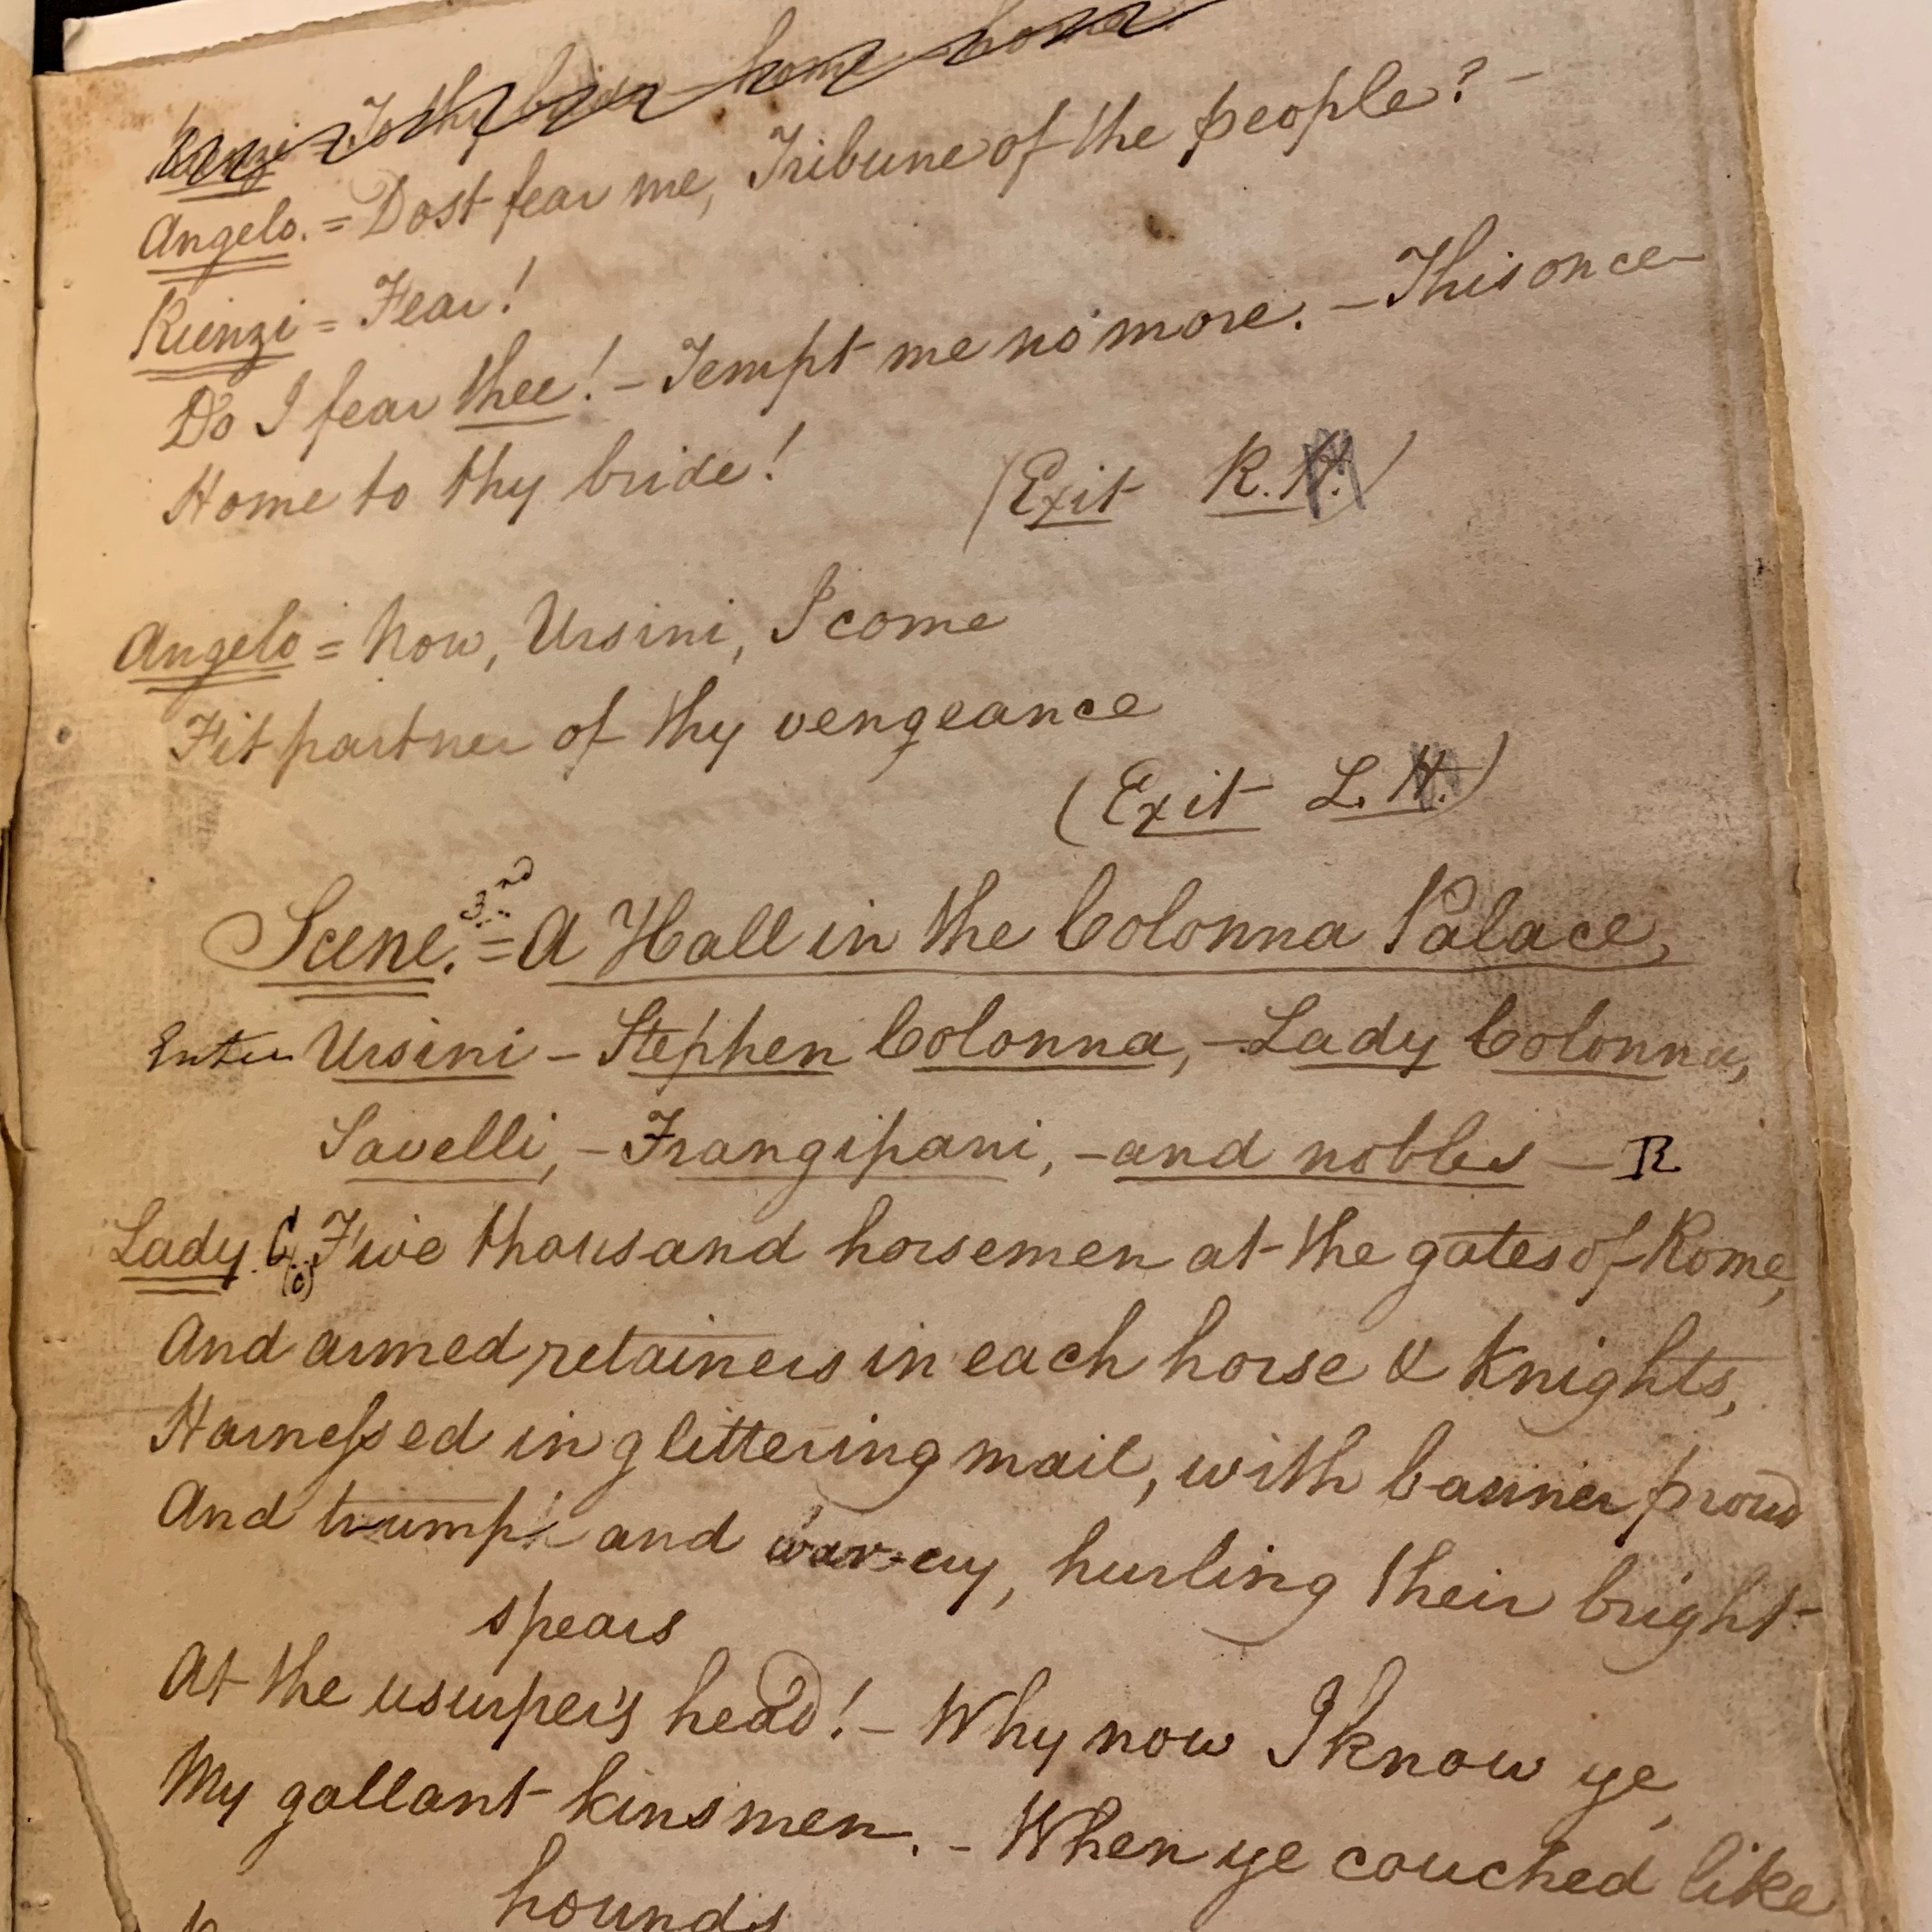 Rienzi = To thy bride - home home
Angelo. = Dost fear me, Tribune of the people? -
Rienzi = Fear!
Do I fear thee! - Tempt me no more. - This once
Home to thy bride!
(Exit R.H.)
Angelo = Now, Ursini, I come
Fit partner of thy vengeance
(Exit L.H.)
Scene. 3rd = A Hall in the Colonna Palace,
Enter Ursini - Stephen Colonna, - Lady Colonna,
Savelli, - Frangipani, - and nobles - R
Lady. C. (c) Five thousand horsemen at the gates of Rome,
And armed retainers in each horse & Knights,
Harnessed in glittering mail, with banner proud
And trump and war-cry, hurling their bright
spears
At the usurper's head! - Why now I know ye,
My gallant kinsmen. - When ye couched like
hounds